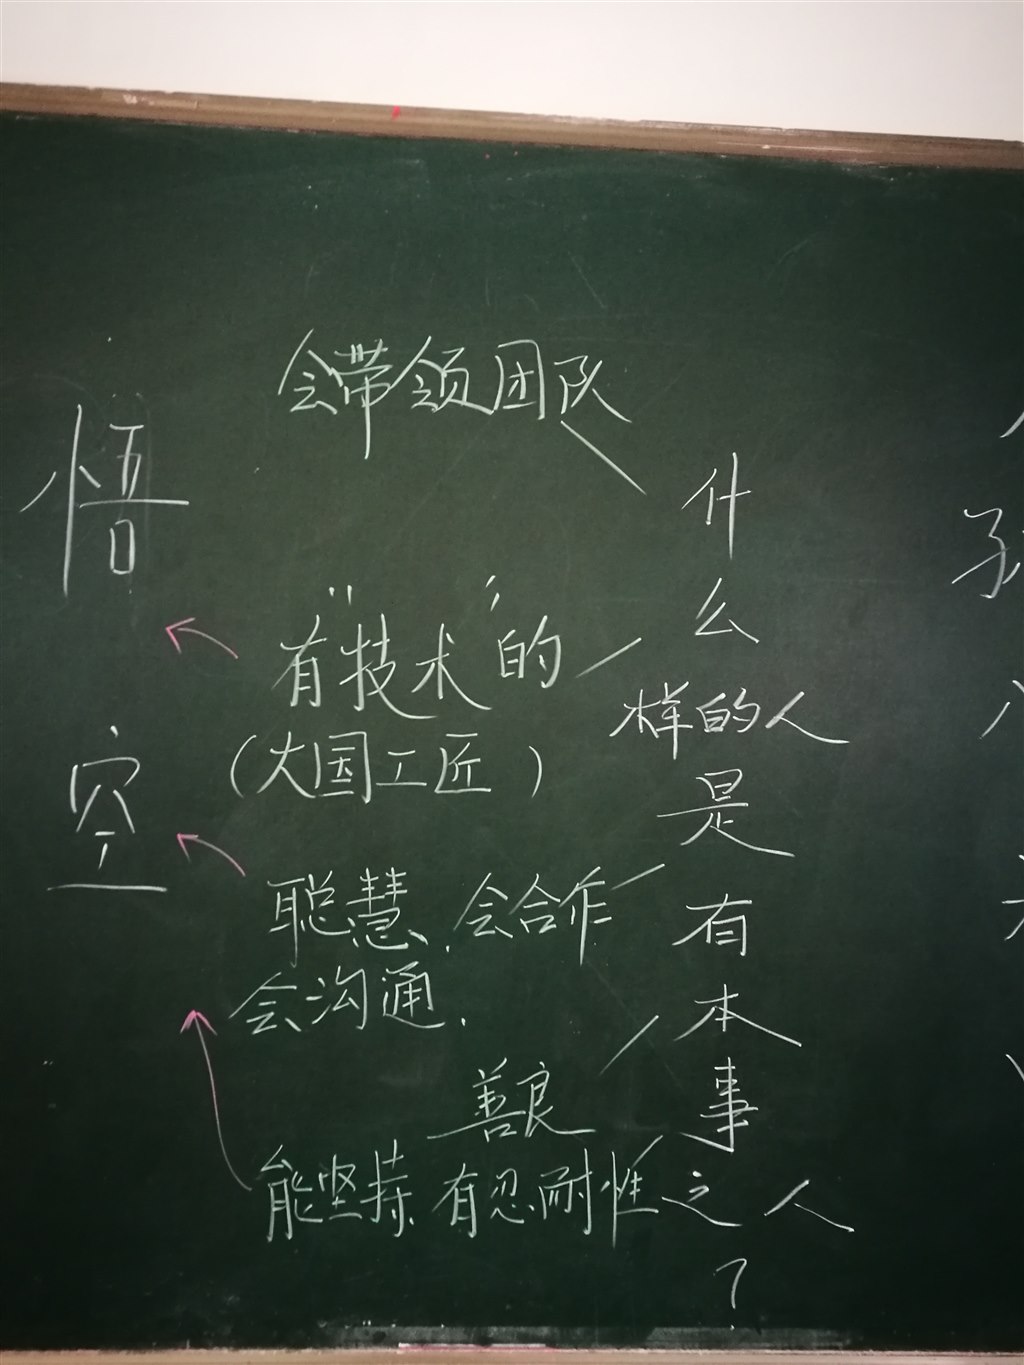 会带领团队
悟空
什么样的人是有本事之人?
有"技术"的
(大国工匠)
聪慧、会合作
会沟通、
善良
能坚持、有忍耐性